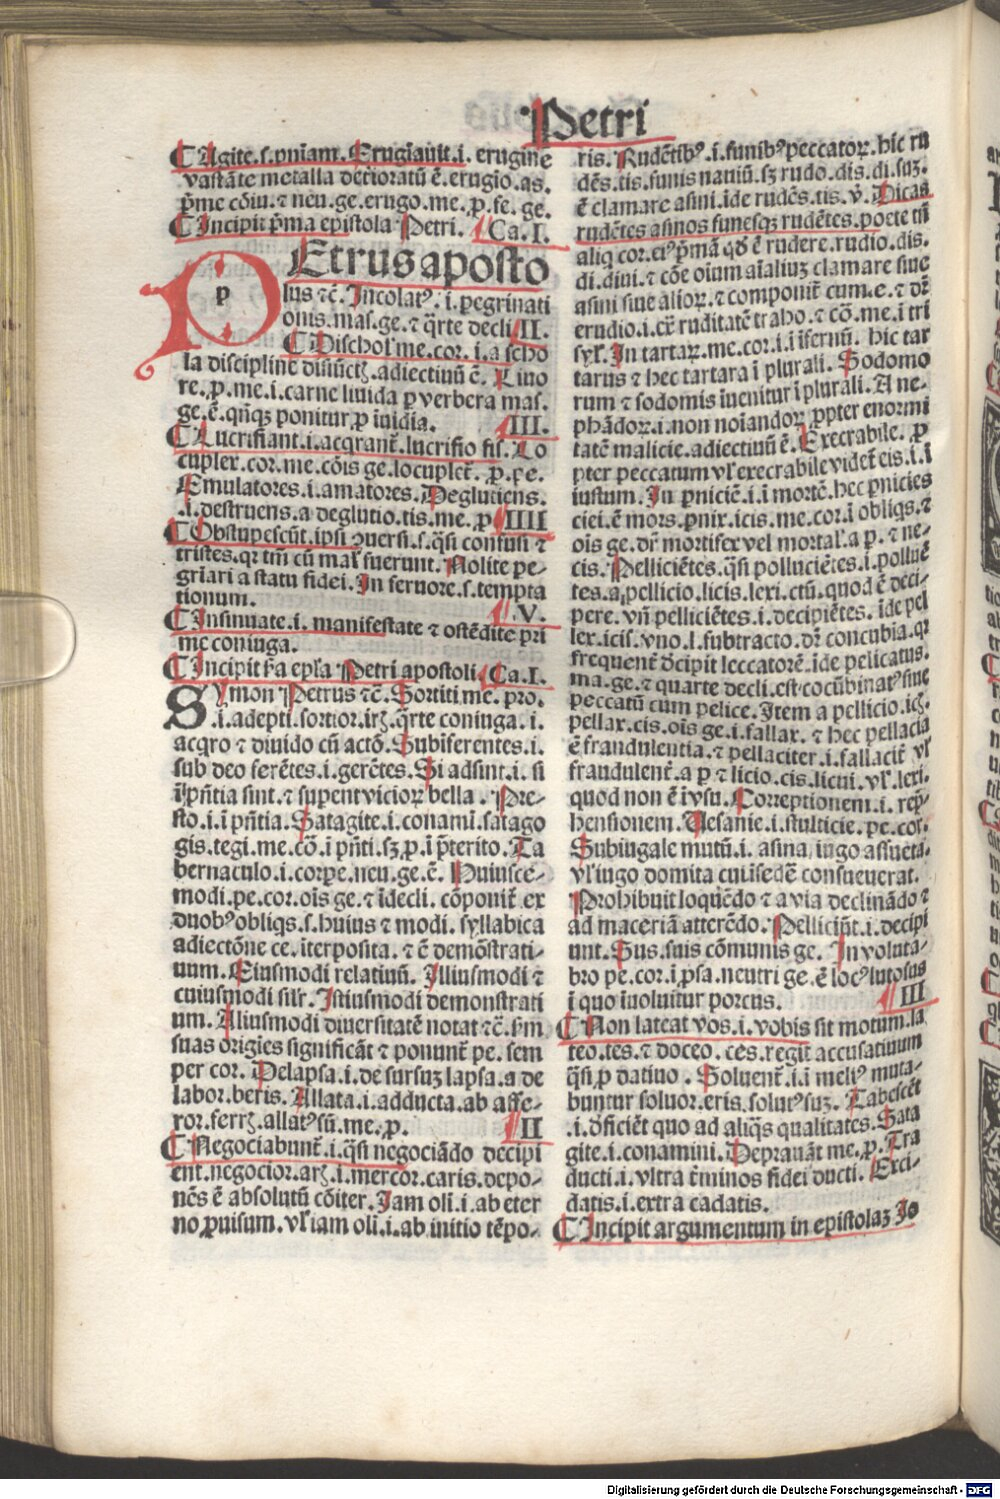 Petri
¶ Agite.s.pniam. Erugiauit.i. erugine
vastate metalla deterioratū ē. erugio.as.
pme cōiu. ⁊ neu.ge.erugo.me.p.fe.ge.
¶ Incipit pma epistola Petri. Ca.I.
PEtrus aposto
p
lus ⁊c̄. Incolatꝰ.i.pegrinati
onis.mas.ge.⁊ q̄rte decli II.
¶ Dischol' me.cor.i.a scho
la discipline diuūctꝫ. adiectiuū ē. Liuo
re.p.me.i carne liuida p verbera mas.
ge.ē.qn̄qꝫ ponitur p īuidia. III.
¶ Lucrifiant.i.acqrant̄.lucrifio fis. Lo
cuplex.cor.me.cōis ge.locuplet̄.p.re.
Emulatores.i.amatores. Deglutiens.
.i.destruens.a deglutio.tis.me.p IIII
¶ Obstupescūt.ipsi ꝯuersi.s.q̄si confusi ⁊
tristes.qr tm̄ cū mal' fuerunt. Nolite pe-
grīari a statu fidei. In feruore.s.tempta
tionum. V.
¶ Insinuate.i.manifestate ⁊ ostēdite pri
me coniuga.
¶ Incipit s̄a epl'a Petri apostoli Ca.I.
SYmon Petrus ⁊c̄. Sortiti me.pro.
.i.adepti.sortior.irꝫ.q̄rte coniuga.i.
acqro ⁊ diuido cū actō. Subiferentes.i.
sub deo ferētes.i.gerētes. Si adsint.i.si
ī pn̄tia sint.⁊ supent viciorꝫ bella. Pre-
sto.i.ī pn̄tia. Satagite.i.conamī.satago
gis.tegi.me.cō.i pn̄ti.sꝫ.p.i p̄terito. Ta
bernaculo.i.corpe.neu.ge.ē. Huiusce-
modi.pe.cor.oīs ge.⁊ īdecli.cōponit̄ ex
duobꝰ obliqs.s.huius ⁊ modi. syllabica
adiectōne ce.īterposita.⁊ ē demōstrati-
uum. Eiusmodi relatiuū. Illiusmodi ⁊
cuiusmodi sil'r. Istiusmodi demonstrati
um. Aliusmodi diuersitatē notat ⁊c̄.s̄m
suas origīes significāt ⁊ ponunt̄ pe.sem
per cor. Delapsa.i.de sursuꝫ lapsa.a de
labor.beris. Allata.i.adducta.ab affe-
ror.ferrꝫ.allatꝰ sū.me.p. II
¶ Negociabunt̄.i.q̄si negociādo decipi
ent.negocior.arꝫ.i.mercor.caris.depo-
nēs ē absolutū cōiter. Iam oli.i.ab eter
no ꝓuisum.vl' iam oli.i.ab initio tēpo-
ris. Rudētibꝰ.i.funibꝰ peccatorꝫ.hic ru
dēs.tis.funis nauiū.sꝫ rudo.dis.di.suꝫ.
ē clamare asini.īde rudēs.tis.v̄. Dicas
rudētes asinos funesqꝫ rudētes.poete tn̄
aliq cor.eiꝰ p̄mā qd ē rudere.rudio.dis.
di.diui.⁊ cōe oīum aīaliuꝫ clamare siue
asini siue aliorꝫ.⁊ componit̄ cum.e.⁊ dr̄
erudio.i.ex ruditatē traho.⁊ cō.me.i tri
syl'. In tartarꝫ.me.cor.i.i īfernū. hic tar
tarus ⁊ hec tartara ī plurali. Sodomo
rum ⁊ sodomis inuenitur ī plurali. A ne-
phādorꝫ.i.non noīandorꝫ ꝓpter enormi
tatē malicie.adiectiuū ē. Execrabile.ꝓ
pter peccatum vl' execrabile videt̄ eis.i.ī
iustum. In pniciē.i.i mortē.hec pnicies
ciei.ē mors.pnix.icis.me.cor.i obliqs.⁊
oīs ge.dr̄ mortifex vel mortal'.a p.⁊ ne-
cis. Pelliciētes.q̄si polluciētes.i.polluē
tes.a.pellicio.licis.lexi.ctū.quod ē deci-
pere.vn̄ pelliciētes.i.decipiētes.īde pel
lex.icis.vno.l.subtracto.dr̄ concubia.qr
frequent̄ d̄cipit leccatorē.īde pelicatus.
ma.ge.⁊ quarte decli.est cōcūbinatꝰ siue
peccatū cum pelice. Item a pellicio.icꝫ.
pellax.cis.oīs ge.i.fallax.⁊ hec pellacia
ē fraudulentia.⁊ pellaciter.i.fallacit̄ vl'
fraudulent̄.a p ⁊ licio.cis.licui.vl'.lexi.
quod non ē ī vsu. Correptionem.i.rep̄-
hensionem. Uesanie.i.stulticie.pe.cor.
Subiugale mutū.i.asina,iugo assueta.
vl' iugo domita cui īsedē consueuerat.
Prohibuit loquēdo ⁊ a via declinādo ⁊
ad maceriā atterēdo. Pellicipn̄t.i.decipi
unt. Sus.suis cōmunis ge. In voluta-
bro pe.cor.i p̄sa.neutri ge.ē locꝰ lutosus
ī quo īuoluitur porcus. III
¶ Non lateat vos.i.vobis sit motum.la
teo.tes.⁊ doceo.ces.regit̄ accusatiuum
q̄si p datiuo. Soluent̄.i.i meliꝰ muta-
buntur soluor.eris.solutꝰ suꝫ. Tabescēt
.i.d̄ficiēt quo ad aliq̄s qualitates. Sata
gite.i.conamini. Deprauāt me.p. Tra
ducti.i.vltra t̄minos fidei ducti. Exci-
datis.i.extra cadatis.
¶ Incipit argumentum in epistolaꝫ Jo
Digitalisierung gefördert durch die Deutsche Forschungsgemeinschaft - DFG